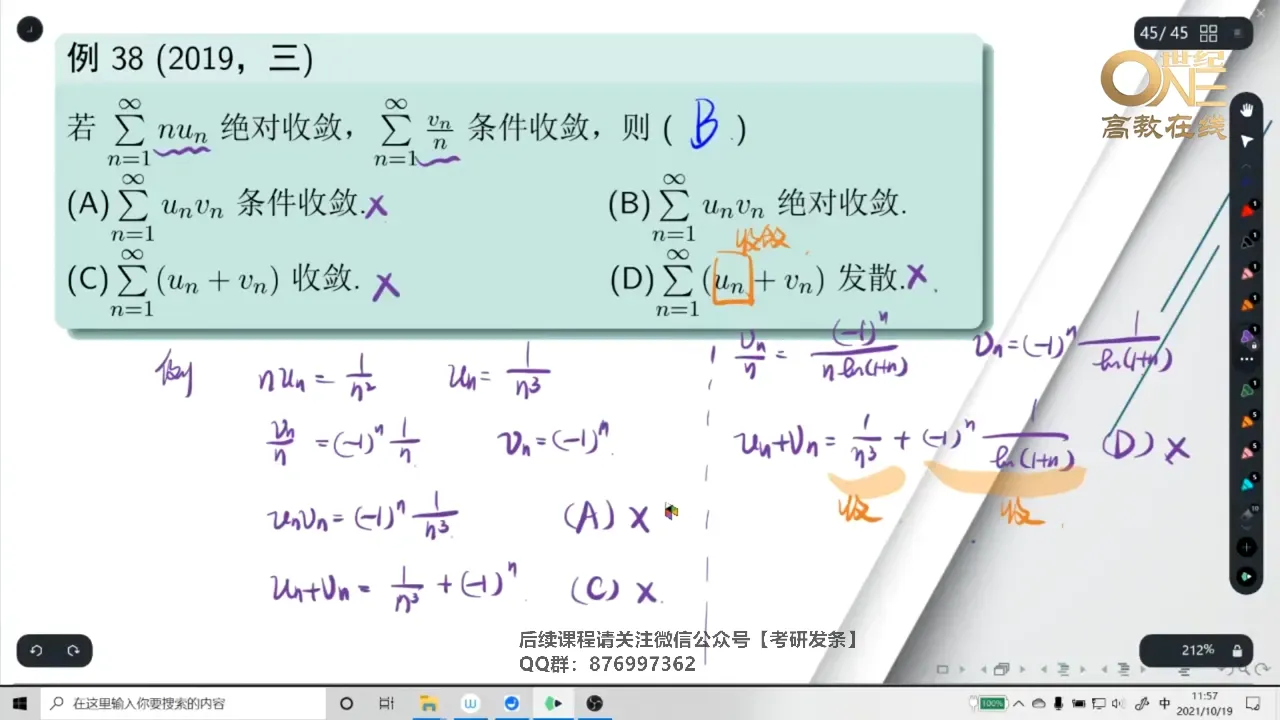 45/45
世纪
ONE
高教在线
例 38 (2019，三)
若 \sum_{n=1}^{\infty} nu_n 绝对收敛，\sum_{n=1}^{\infty} \frac{v_n}{n} 条件收敛，则 ( B )
(A) \sum_{n=1}^{\infty} u_n v_n 条件收敛. ×
(B) \sum_{n=1}^{\infty} u_n v_n 绝对收敛.
收敛
(C) \sum_{n=1}^{\infty} (u_n + v_n) 收敛. ×
(D) \sum_{n=1}^{\infty} (u_n + v_n) 发散. ×
例 nu_n = \frac{1}{n^2} u_n = \frac{1}{n^3}
\frac{v_n}{n} = (-1)^n \frac{1}{n} v_n = (-1)^n
u_n v_n = (-1)^n \frac{1}{n^3} (A) ×
u_n + v_n = \frac{1}{n^3} + (-1)^n (C) ×
\frac{v_n}{n} = \frac{(-1)^n}{n \ln(1+n)} v_n = (-1)^n \frac{1}{\ln(1+n)}
u_n + v_n = \frac{1}{n^3} + (-1)^n \frac{1}{\ln(1+n)} (D) ×
收 收
后续课程请关注微信公众号【考研发条】
QQ群：876997362
212%
在这里输入你要搜索的内容
100%
中
11:57
2021/10/19